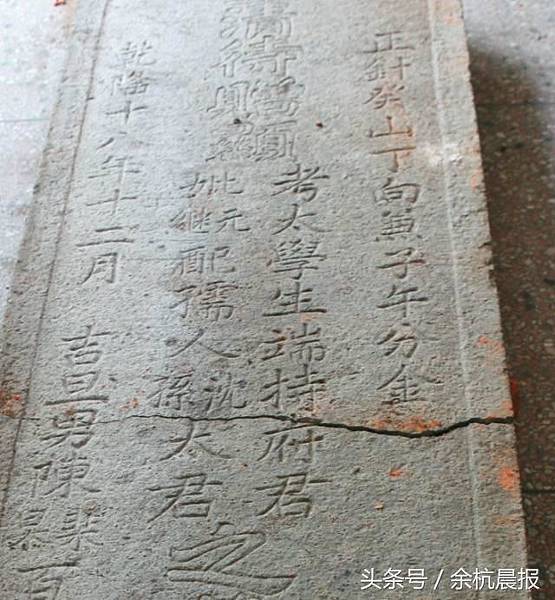 正針癸山丁向兼子午分金
考太學生端持府君
妣元配
妣继配
孺人
沈
孫
太君
之
乾隆十八年十二月
吉旦男陳
百
头条号／余杭晨报